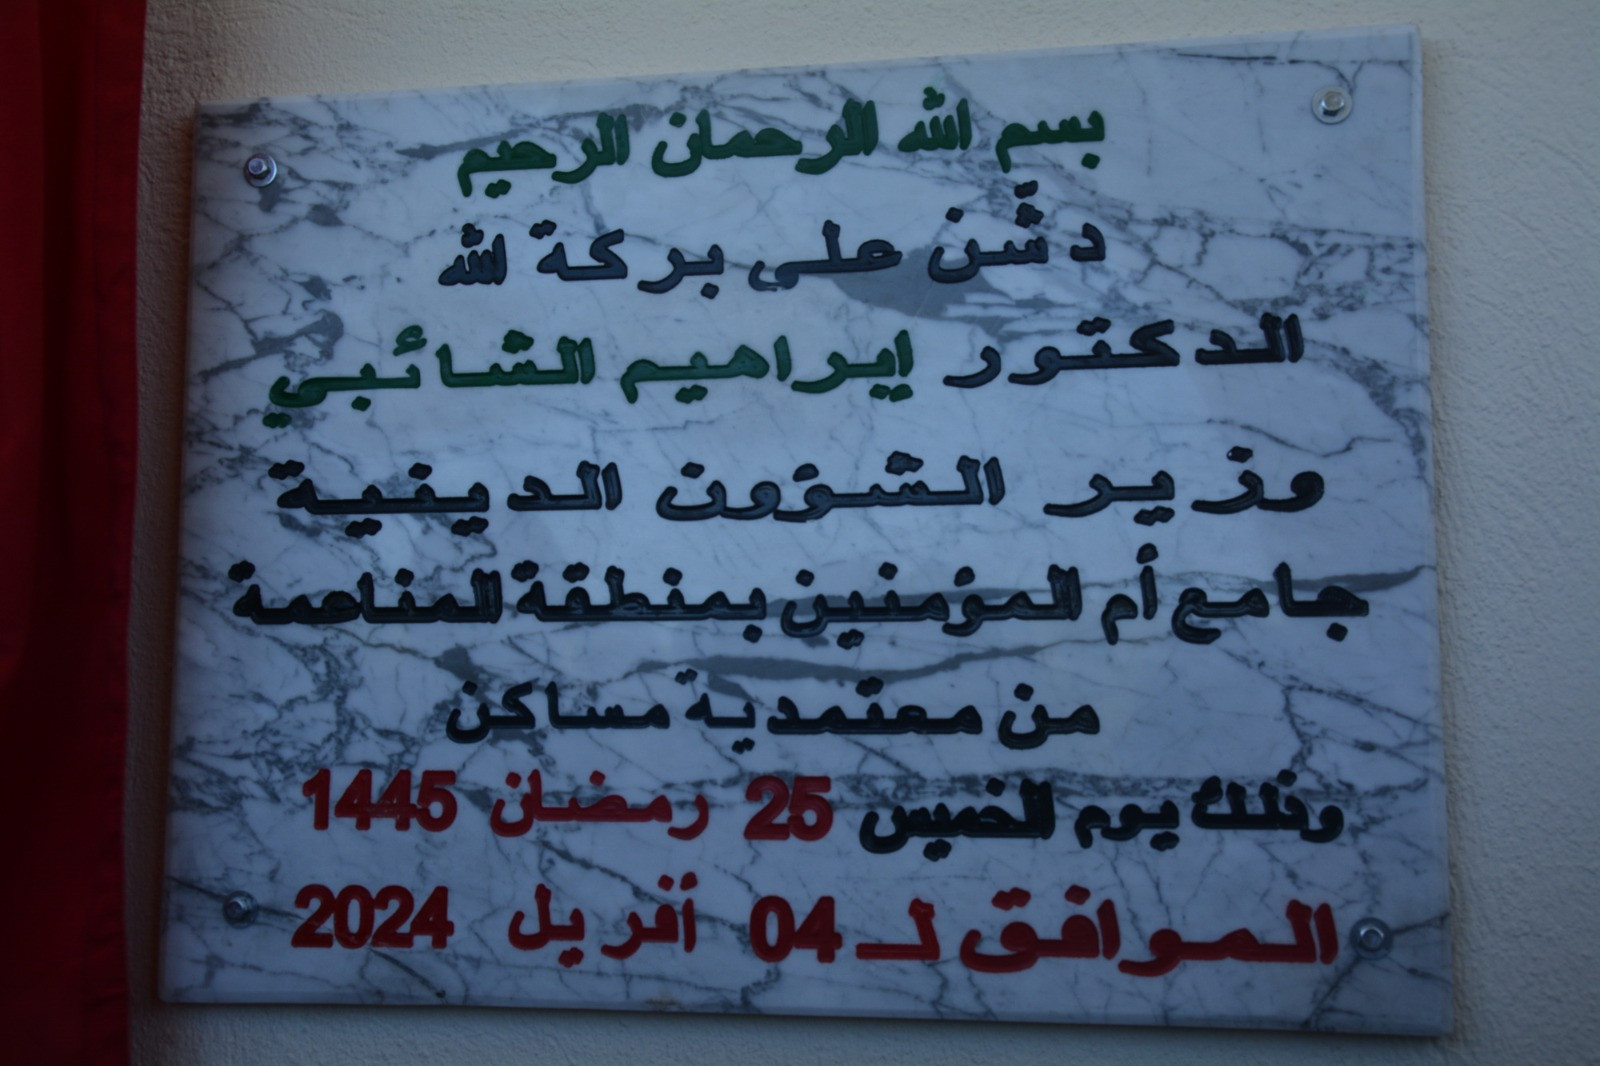 بسم الله الرحمان الرحيم
دشّن على بركة لله
الدكتور إبراهيم الشائبي
وزير الشؤون الدينية
جامع أم المؤمنين بمنطقة المناعمة
من معتمدية مساكن
وذلك يوم الخميس 25 رمضان 1445
الموافق لـ 04 أفريل 2024